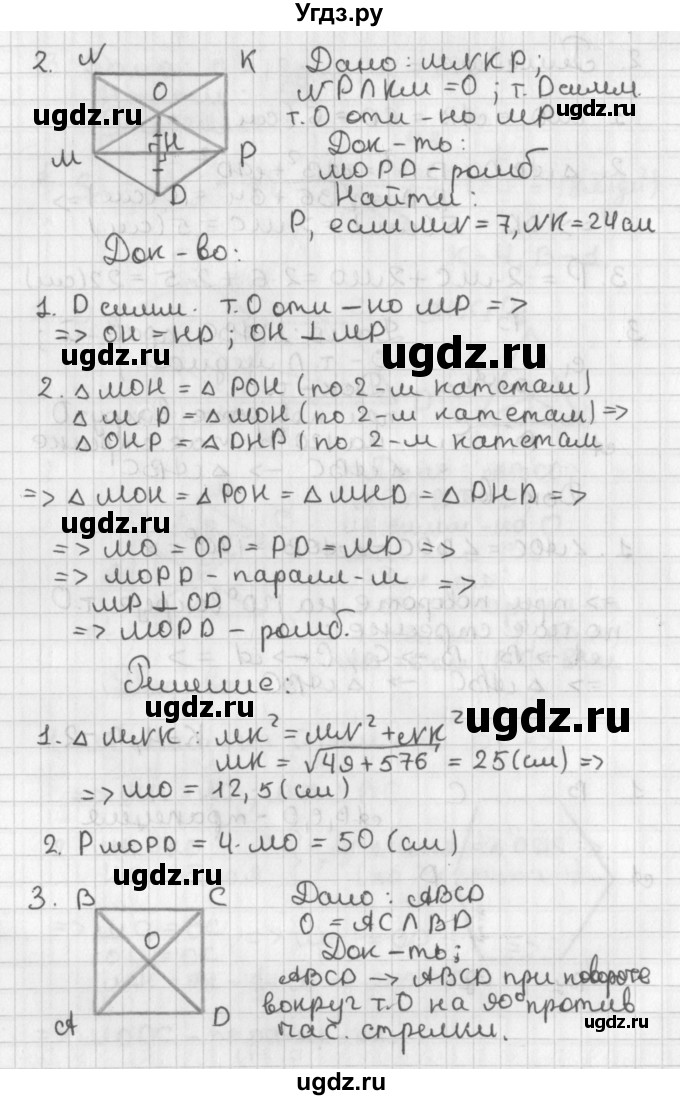 Угдз.ру
2. N K Дано: MNKP;
NP∩KM = O; т. D симм.
O
т. O отн-но MP
ugdz.ru
Док-ть:
M H P
MOPD - ромб
D
Найти:
P, если MN = 7, NK = 24 см
Док-во:
1. D симм. т. O отн-но MP =>
=> OH = HD; OH ⊥ MP
ugdz.ru
2. △ MOH = △ POH (по 2-м катетам)
△ M D = △ MOH (по 2-м катетам) =>
△ OHP = △ DHP (по 2-м катетам
=> △ MOH = △ POH = △ MHD = △ PHD =>
ugdz.ru
=> MO = OP = PD = MD =>
=> MOPD - паралл-м =>
MP ⊥ OD
=> MOPD - ромб.
Решение:
ugdz.ru
1. △ MNK: MK² = MN² + NK²
MK = √49 + 576 = 25 (см) =>
=> MO = 12,5 (см)
2. P MOPD = 4 · MO = 50 (см)
ugdz.ru
3. B C Дано: ABCD
O = AC∩BD
O
Док-ть;
ABCD → ABCD при повороте
вокруг т. O на 90° против
A D
час. стрелки.
ugdz.ru
ugdz.ru